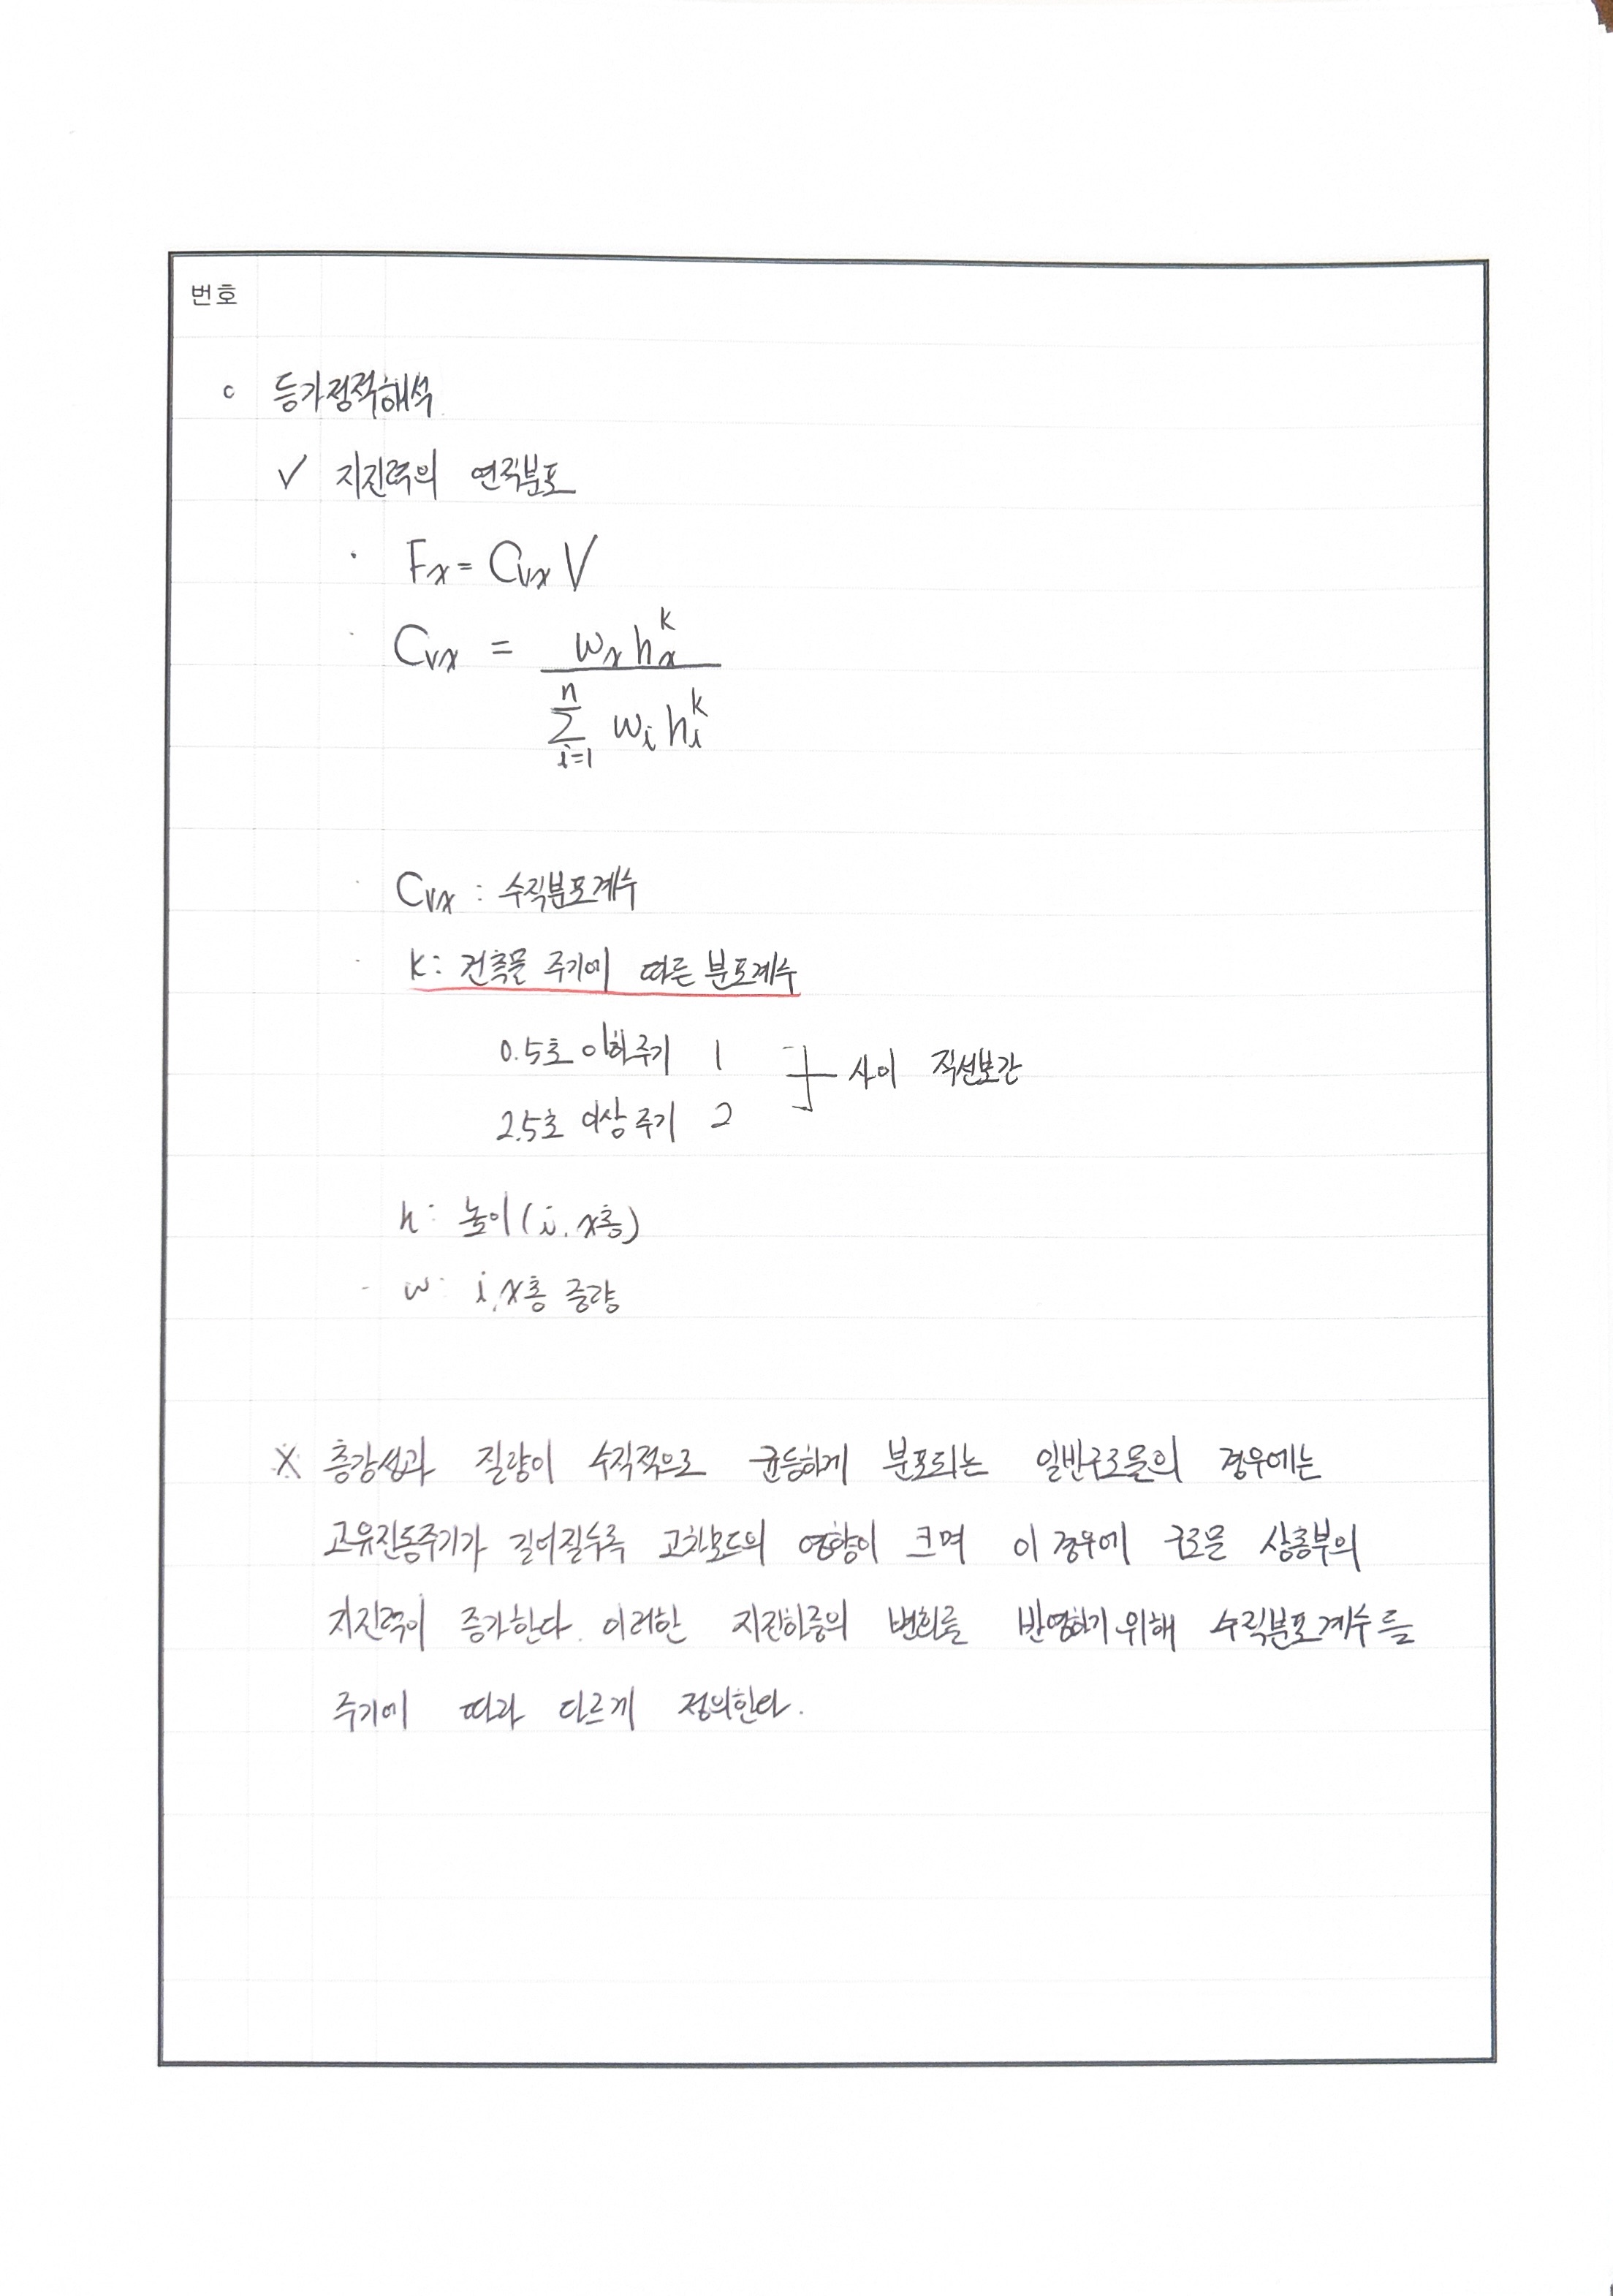 번호
○ 등가정적해석
✓ 지진력의 연직분포
· Fx = Cvx V
· Cvx = wx hx^k / Σ(i=1, n) wi hi^k
· Cvx : 수직분포계수
· k : 건축물 주기에 따른 분포계수
0.5초 이하 주기 1
} 사이 직선보간
2.5초 이상 주기 2
h : 높이(i, x층)
- w : i, x층 중량
※ 층강성과 질량이 수직적으로 균등하게 분포되는 일반구조물의 경우에는
고유진동주기가 길어질수록 고차모드의 영향이 크며 이 경우에 구조물 상층부의
지진력이 증가한다. 이러한 지진하중의 변화를 반영하기 위해 수직분포계수를
주기에 따라 다르게 정의한다.